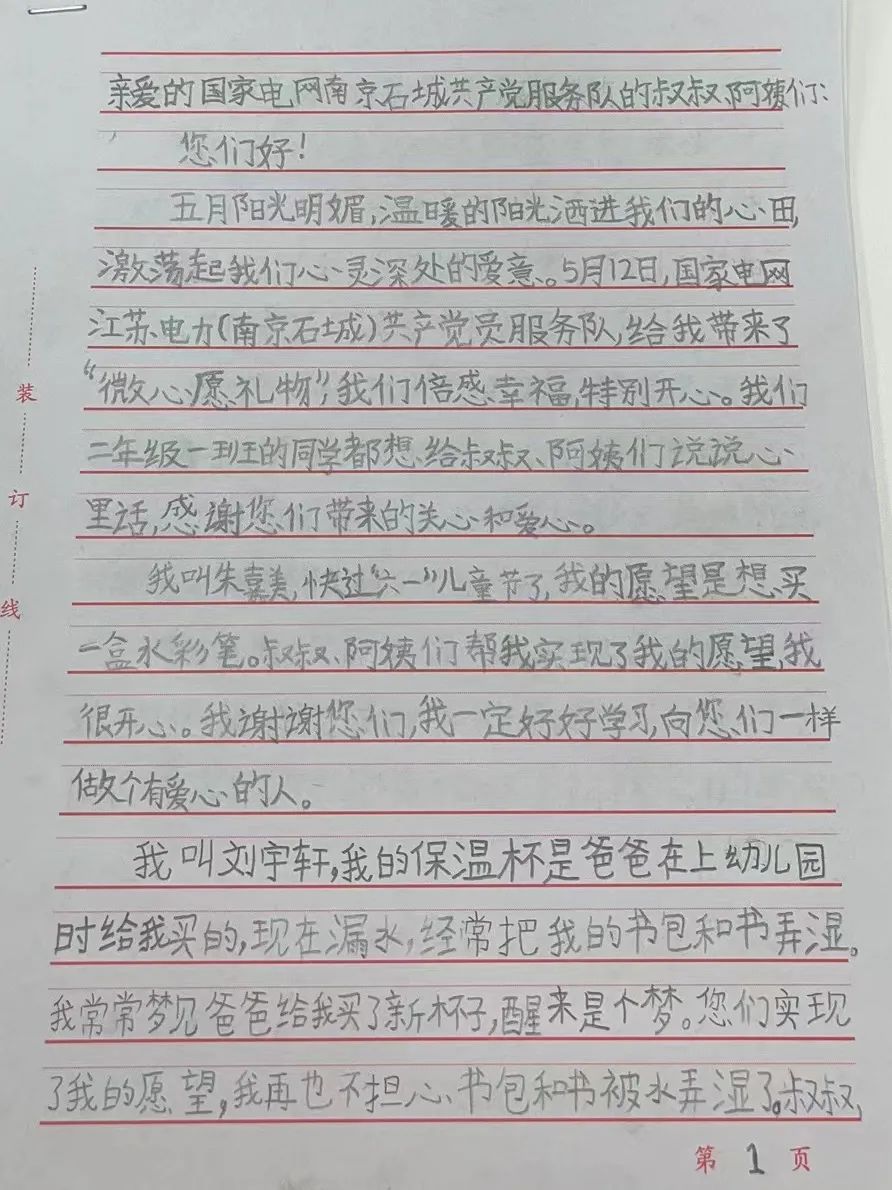 亲爱的国家电网南京石城共产党服务队的叔叔、阿姨们:
您们好!
五月阳光明媚,温暖的阳光洒进我们的心田,
激荡起我们心灵深处的爱意。5月12日,国家电网
江苏电力(南京石城)共产党员服务队,给我带来了
“微心愿礼物”,我们倍感幸福,特别开心。我们
二年级一班的同学都想给叔叔、阿姨们说说心
里话,感谢您们带来的关心和爱心。
我叫朱嘉美,快过“六一”儿童节了,我的愿望是想买
一盒水彩笔。叔叔、阿姨们帮我实现了我的愿望,我
很开心。我谢谢您们,我一定好好学习,向您们一样
做个有爱心的人。
我叫刘宇轩,我的保温杯是爸爸在上幼儿园
时给我买的,现在漏水,经常把我的书包和书弄湿。
我常常梦见爸爸给我买了新杯子,醒来是个梦。您们实现
了我的愿望,我再也不担心书包和书被水弄湿了。叔叔、
第1页
装
订
线